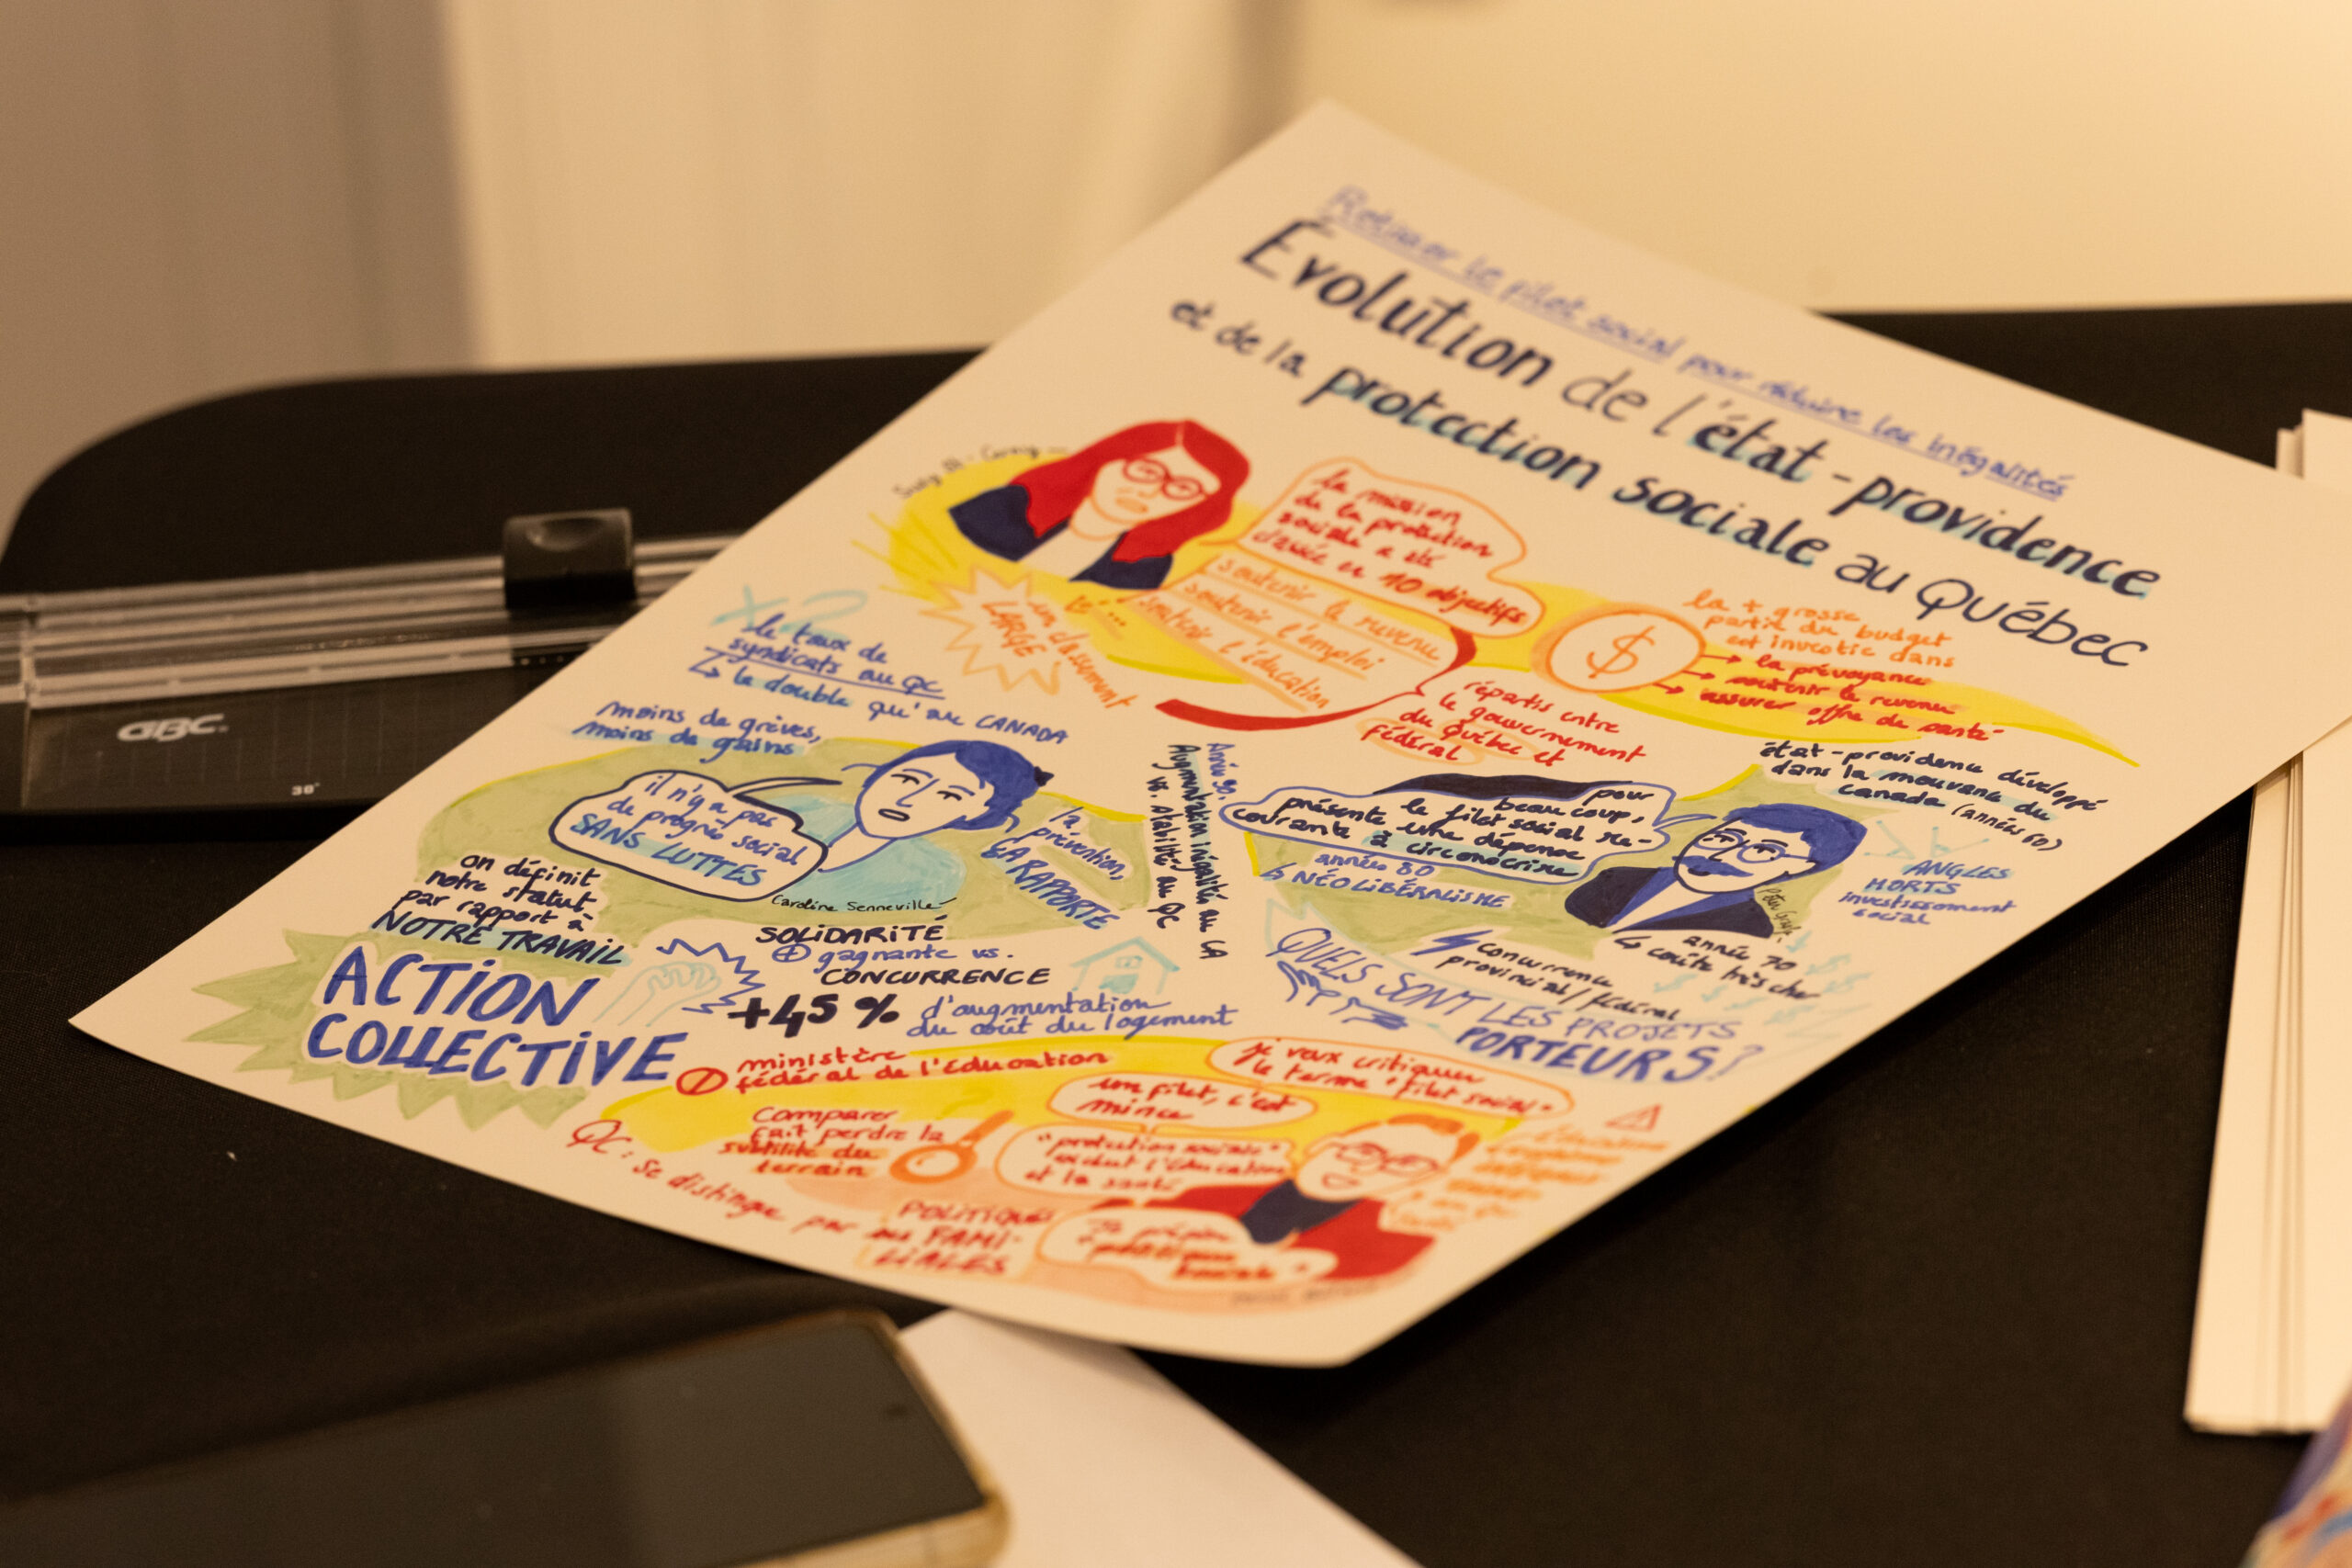 Retisser le filet social pour réduire les inégalités
Évolution de l'état-providence
et de la protection sociale au Québec
la mission
de la protection
sociale a été
en 10 objectifs
soutenir le revenu
soutenir l'emploi
soutenir l'éducation
un classement
LARGE
$
la + grosse
partie du budget
est investie dans
→ la prévoyance
→ soutenir le revenu
→ assurer offre de santé
répartis entre
le gouvernement
du Québec et
fédéral
x2
le taux de
syndicats au QC
↳ le double qu'au CANADA
moins de grèves,
moins de gains
il n'y a pas
de progrès social
SANS LUTTES
Caroline Senneville
la
prévention,
ÇA RAPPORTE
on définit
notre statut
par rapport à
NOTRE TRAVAIL
ACTION
COLLECTIVE
SOLIDARITÉ
+ gagnante vs.
CONCURRENCE
+45 % d'augmentation
du coût du logement
Année 90,
Augmentation inégalité au CA
vs. stabilité au QC
pour
beaucoup,
présente le filet social
courante une dépense
à circonscrire
années 80
↳ NÉOLIBÉRALISME
état-providence développé
dans la mouvance du
Canada (années 60)
ANGLES
MORTS
investissement
social
année 70
↳ coûte très cher
concurrence
provincial / fédéral
QUELS SONT LES PROJETS
PORTEURS?
ministère
fédéral de l'éducation
je veux critiquer
le terme "filet social"
un filet, c'est
mince
"protection sociale"
exclut l'éducation
et la santé
Comparer
fait perdre la
subtilité du
terrain
QC : se distingue par ses
POLITIQUES
FAMI-
LIALES
Je préfère
GBC
30"